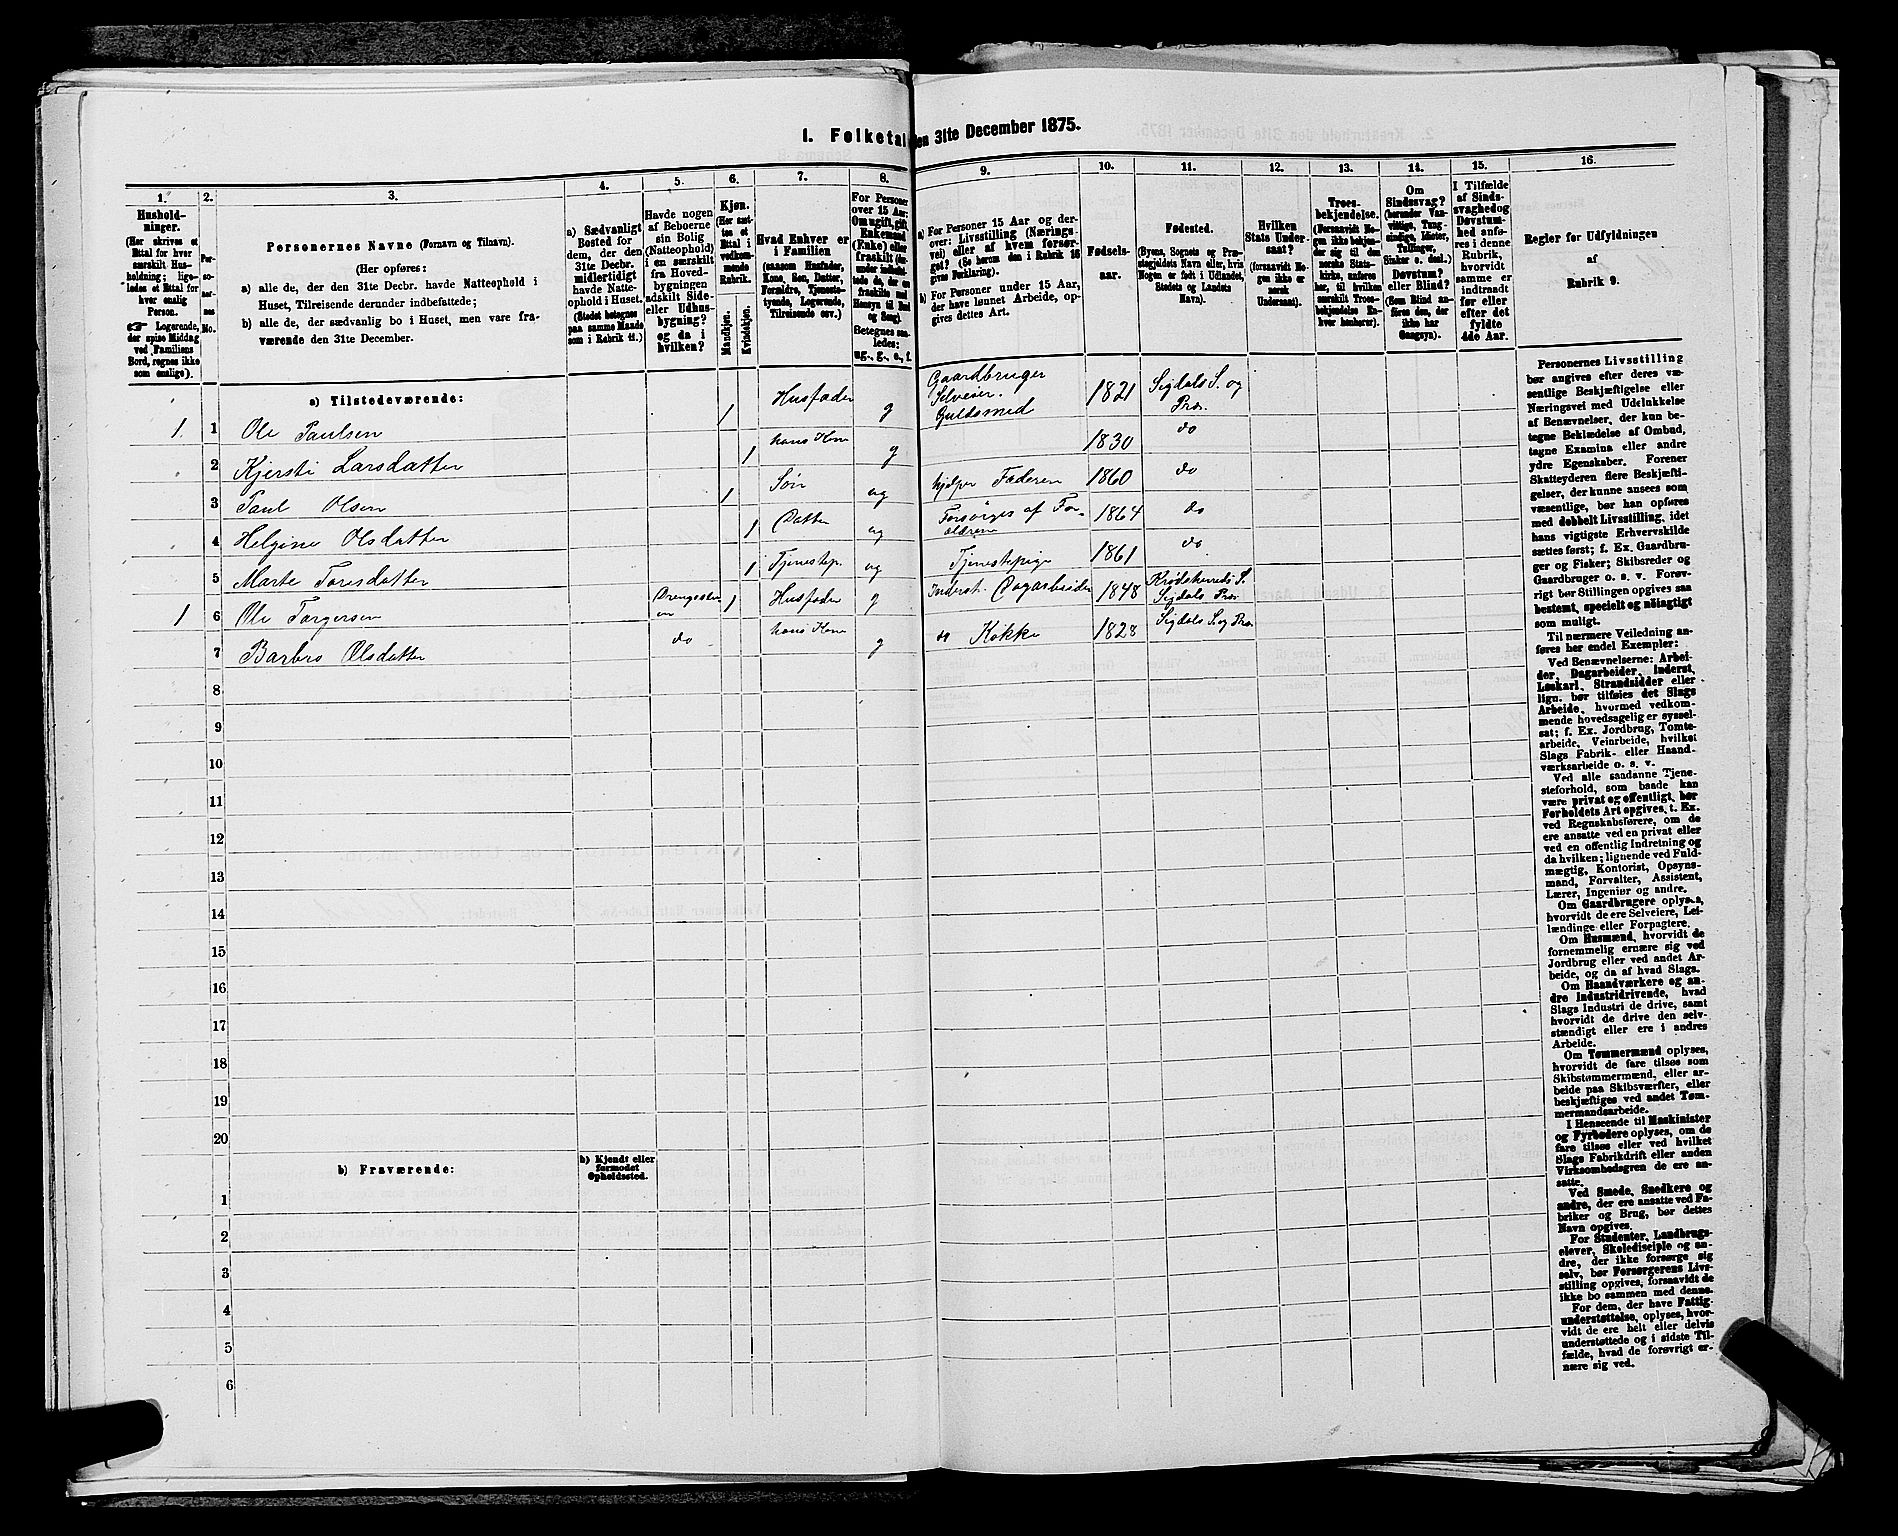 I. Folketal den 31te December 1875.
1.
2.
3.
4.
5.
6.
7.
8.
9.
10.
11.
12.
13.
14.
15.
16.
Hushold-
ninger.
(Her skrives et
Ettal for hver
særskilt Hus-
holdning; lige-
ledes et Ettal for
hver enslig
Person.
☞ Logerende,
der spise Middag
ved Familiens
Bord, regnes ikke
som enslige).
Per-
so-
ner-
nes
No.
Personernes Navne (Fornavn og Tilnavn).
(Her opføres:
a) alle de, der den 31te Decbr. havde Natteophold i
Huset, Tilreisende derunder indbefattede;
b) alle de, der sædvanlig bo i Huset, men vare fra-
værende den 31te December.
a) Sædvanligt
Bosted for
dem, der den
31te Decbr.
midlertidigt
havde Natte-
ophold i Huset.
(Stedet betegnes
paa samme Maade
som i Rubrik 11.)
Havde nogen
af Beboerne
sin Bolig
(Natteophold)
i en særskilt
fra Hoved-
bygningen
adskilt Side-
eller Udhus-
bygning?
og da i
hvilken?
Kjøn.
(Her sæt-
tes et
Ettal i
vedkom-
mende
Rubrik.
Mandkjøn.
Kvindekjøn.
Hvad Enhver er
i Familien
(saasom Husfader,
Kone, Søn, Datter,
Forældre, Tjeneste-
tyende, Logerende,
Tilreisende osv.)
For Personer
over 15 Aar:
Om ugift, gift,
Enkemand
(Enke) eller
fraskilt
Betegnes saa-
ledes:
ug., g., e., f.
a) For Personer 15 Aar og der-
over: Livsstilling (Nærings-
vei) eller af hvem forsør-
get? (Se herom den i Rubrik 16
givne Forklaring).
b) For Personer under 15 Aar,
der have lønnet Arbeide, op-
gives dettes Art.
Fødsels-
aar.
Fødested.
(Byens, Sognets og Præ-
stegjeldets Navn eller, hvis
Nogen er født i Udlandet,
Stedets og Landets
Navn).
Hvilken
Stats Under-
saat?
(forsaavidt No-
gen ikke er
norsk
Undersaat).
Troes-
bekjendelse.
(Forsaavidt No-
gen ikke bekjen-
der sig til den
norske Stats-
kirke, anføres
her, til hvilken
særskilt Troes-
bekjendelse En-
hver henhører).
Om
Sindssvag?
(herunder Van-
vittige, Tung-
sindige, Idioter,
Tullinger,
Sinker o. desl.)
Døvstum?
eller Blind?
(Som Blind an-
føres den, der
ikke har
Gangsyn).
I Tilfælde
af Sinds-
svaghed og
Døvstum-
hed anfø-
res i denne
Rubrik,
hvorvidt
samme er
indtraadt
før eller
efter det
fyldte
4de Aar.
Regler for Udfyldningen
af
Rubrik 9.
a) Tilstedeværende:
1 1 Ole Paulsen 1 Husfader g Gaardbruger Selveier. Guldsmed 1821 Sigdals S. og Pre.
2 Kjersti Larsdatter 1 hans Kone g 1830 do
3 Paul Olsen 1 Søn ug hjelper Faderen 1860 do
4 Helgine Olsdatter 1 Datter ug Forsørges af Forældrene 1864 do
5 Marte Toresdatter 1 Tjenestep. ug Tjenestepige 1861 do
1 6 Ole Torgersen 1 Husfader g Inderst. Dagarbeider 1848 Krødsherreds S. Sigdals Pre.
7 Barbro Olsdatter do hans Kone g Kokke 1828 Sigdals S. og Pre.
8
9
10
11
12
13
14
15
16
17
18
19
20
b) Fraværende:
b) Kjendt eller
formodet
Opholdssted.
1
2
3
4
5
6
Personernes Livsstilling
bør angives efter deres væ-
sentlige Beskjæftigelse eller
Næringsvei med Udelukkelse
af Benævnelser, der kun be-
tegne Beklædelse af Ombud,
tagne Examina eller andre
ydre Egenskaber. Forener
Skatteyderen flere Beskjæfti-
gelser, der kunne ansees som
væsentlige, bør han opføres
med dobbelt Livsstilling, idet
hans vigtigste Erhvervskilde
sættes først; f. Ex. Gaardbru-
ger og Fisker; Skibsreder og
Gaardbruger o. s. v. Forøv-
rigt bør Stillingen opgives saa
bestemt, specielt og nöiagtigt
som muligt.
Til nærmere Veiledning an-
føres her endel Exempler:
Ved Benævnelserne: Arbei-
der, Dagarbeider, Inderst,
Løskarl, Strandsidder eller
lign. bør tilføies det Slags
Arbeide, hvormed vedkom-
mende hovedsagelig er syssel-
sat; f. Ex. Jordbrug, Tomte-
arbeide, Veiarbeide, hvilket
Slags Fabrik- eller Haand-
værksarbeide o. s. v.
Ved alle saadanne Tjene-
steforhold, som baade kan
være privat og offentligt, bør
Forholdets Art opgives, t. Ex.
ved Regnskabsførere, om de
ere ansatte ved en privat eller
ved en offentlig Indretning og
da hvilken; lignende ved Fuld-
mægtig, Kontorist, Opsyns-
mand, Forvalter, Assistent,
Lærer, Ingeniør og andre.
Om Gaardbrugere oplyses,
hvorvidt de ere Selveiere, Lei-
lændinge eller Forpagtere.
Om Husmænd, hvorvidt de
fornemmelig ernære sig ved
Jordbrug eller ved andet Ar-
beide, og da af hvad Slags.
Om Haandværkere og an-
dre Industridrivende, hvad
Slags Industri de drive, samt
hvorvidt de drive den selv-
stændigt eller ere i andres
Arbeide.
Om Tømmermænd oplyses,
hvorvidt de fare tilsøs som
Skibstømmermænd, eller ar-
beide paa Skibsværfter, eller
beskjæftiges ved andet Tøm-
mermandsarbeide.
I Henseende til Maskinister
og Fyrbødere oplyses, om de
fare tilsøs eller ved hvilket
Slags Fabrikdrift eller anden
Virksomhedsgren de ere an-
satte.
Ved Smede, Snedkere og
andre, der ere ansatte ved Fa-
briker og Brug, bør dettes
Navn opgives.
For Studenter, Landbrugs-
elever, Skoledisciple og an-
dre, der ikke forsørge sig
selv, bør Forsørgerens Livs-
stilling opgives, forsaavidt de
ikke bo sammen med denne.
For dem, der have Fattig-
understøttelse, oplyses, hvor-
vidt de ere helt eller delvis
understøttede og i sidste Til-
fælde, hvad de forøvrigt er-
nære sig ved.